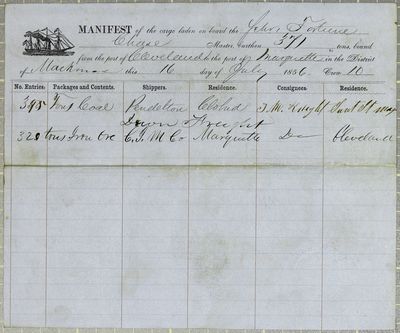 MANIFEST of the cargo laden on board the John Fortune
Chase Master, burthen 371 tons, bound
from the port of Cleveland to the port of Marquette in the District
of Mackinac this 16 day of July 1856 Crew 10
No. Entries. Packages and Contents. Shippers. Residence. Consignees Residence.
395 Tons Coal Pendelton Clevland Wright
Down Freight
320 tons Iron Ore C.I.M Co Marquette Do Cleveland